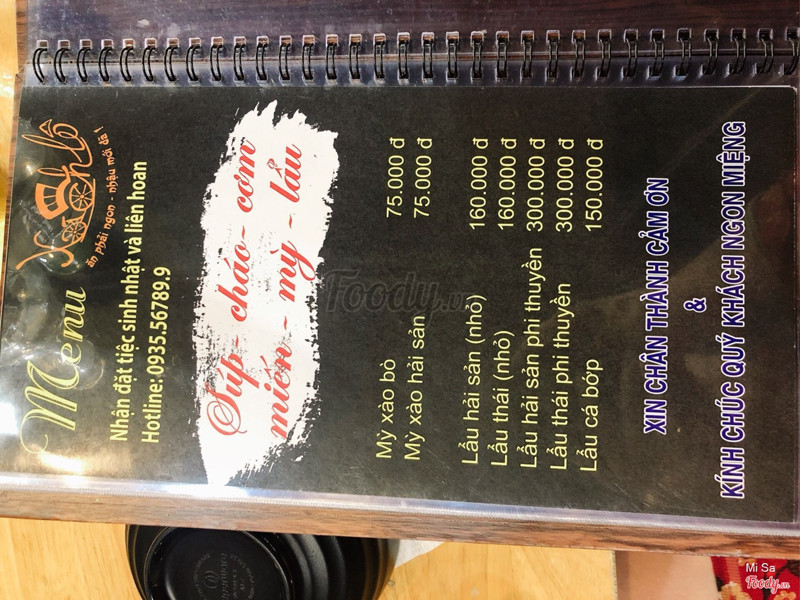 Menu
Xích lô
ăn phải ngon - nhậu mới đã !
Nhận đặt tiệc sinh nhật và liên hoan
Hotline: 0935.56789.9
Súp - cháo - cơm
miến - mỳ - lẩu
Mỳ xào bò 75.000 đ
Mỳ xào hải sản 75.000 đ
Lẩu hải sản (nhỏ) 160.000 đ
Lẩu thái (nhỏ) 160.000 đ
Lẩu hải sản phi thuyền 300.000 đ
Lẩu thái phi thuyền 300.000 đ
Lẩu cá bớp 150.000 đ
XIN CHÂN THÀNH CẢM ƠN
&
KÍNH CHÚC QUÝ KHÁCH NGON MIỆNG
Foody.vn
Mi Sa
Foody.vn